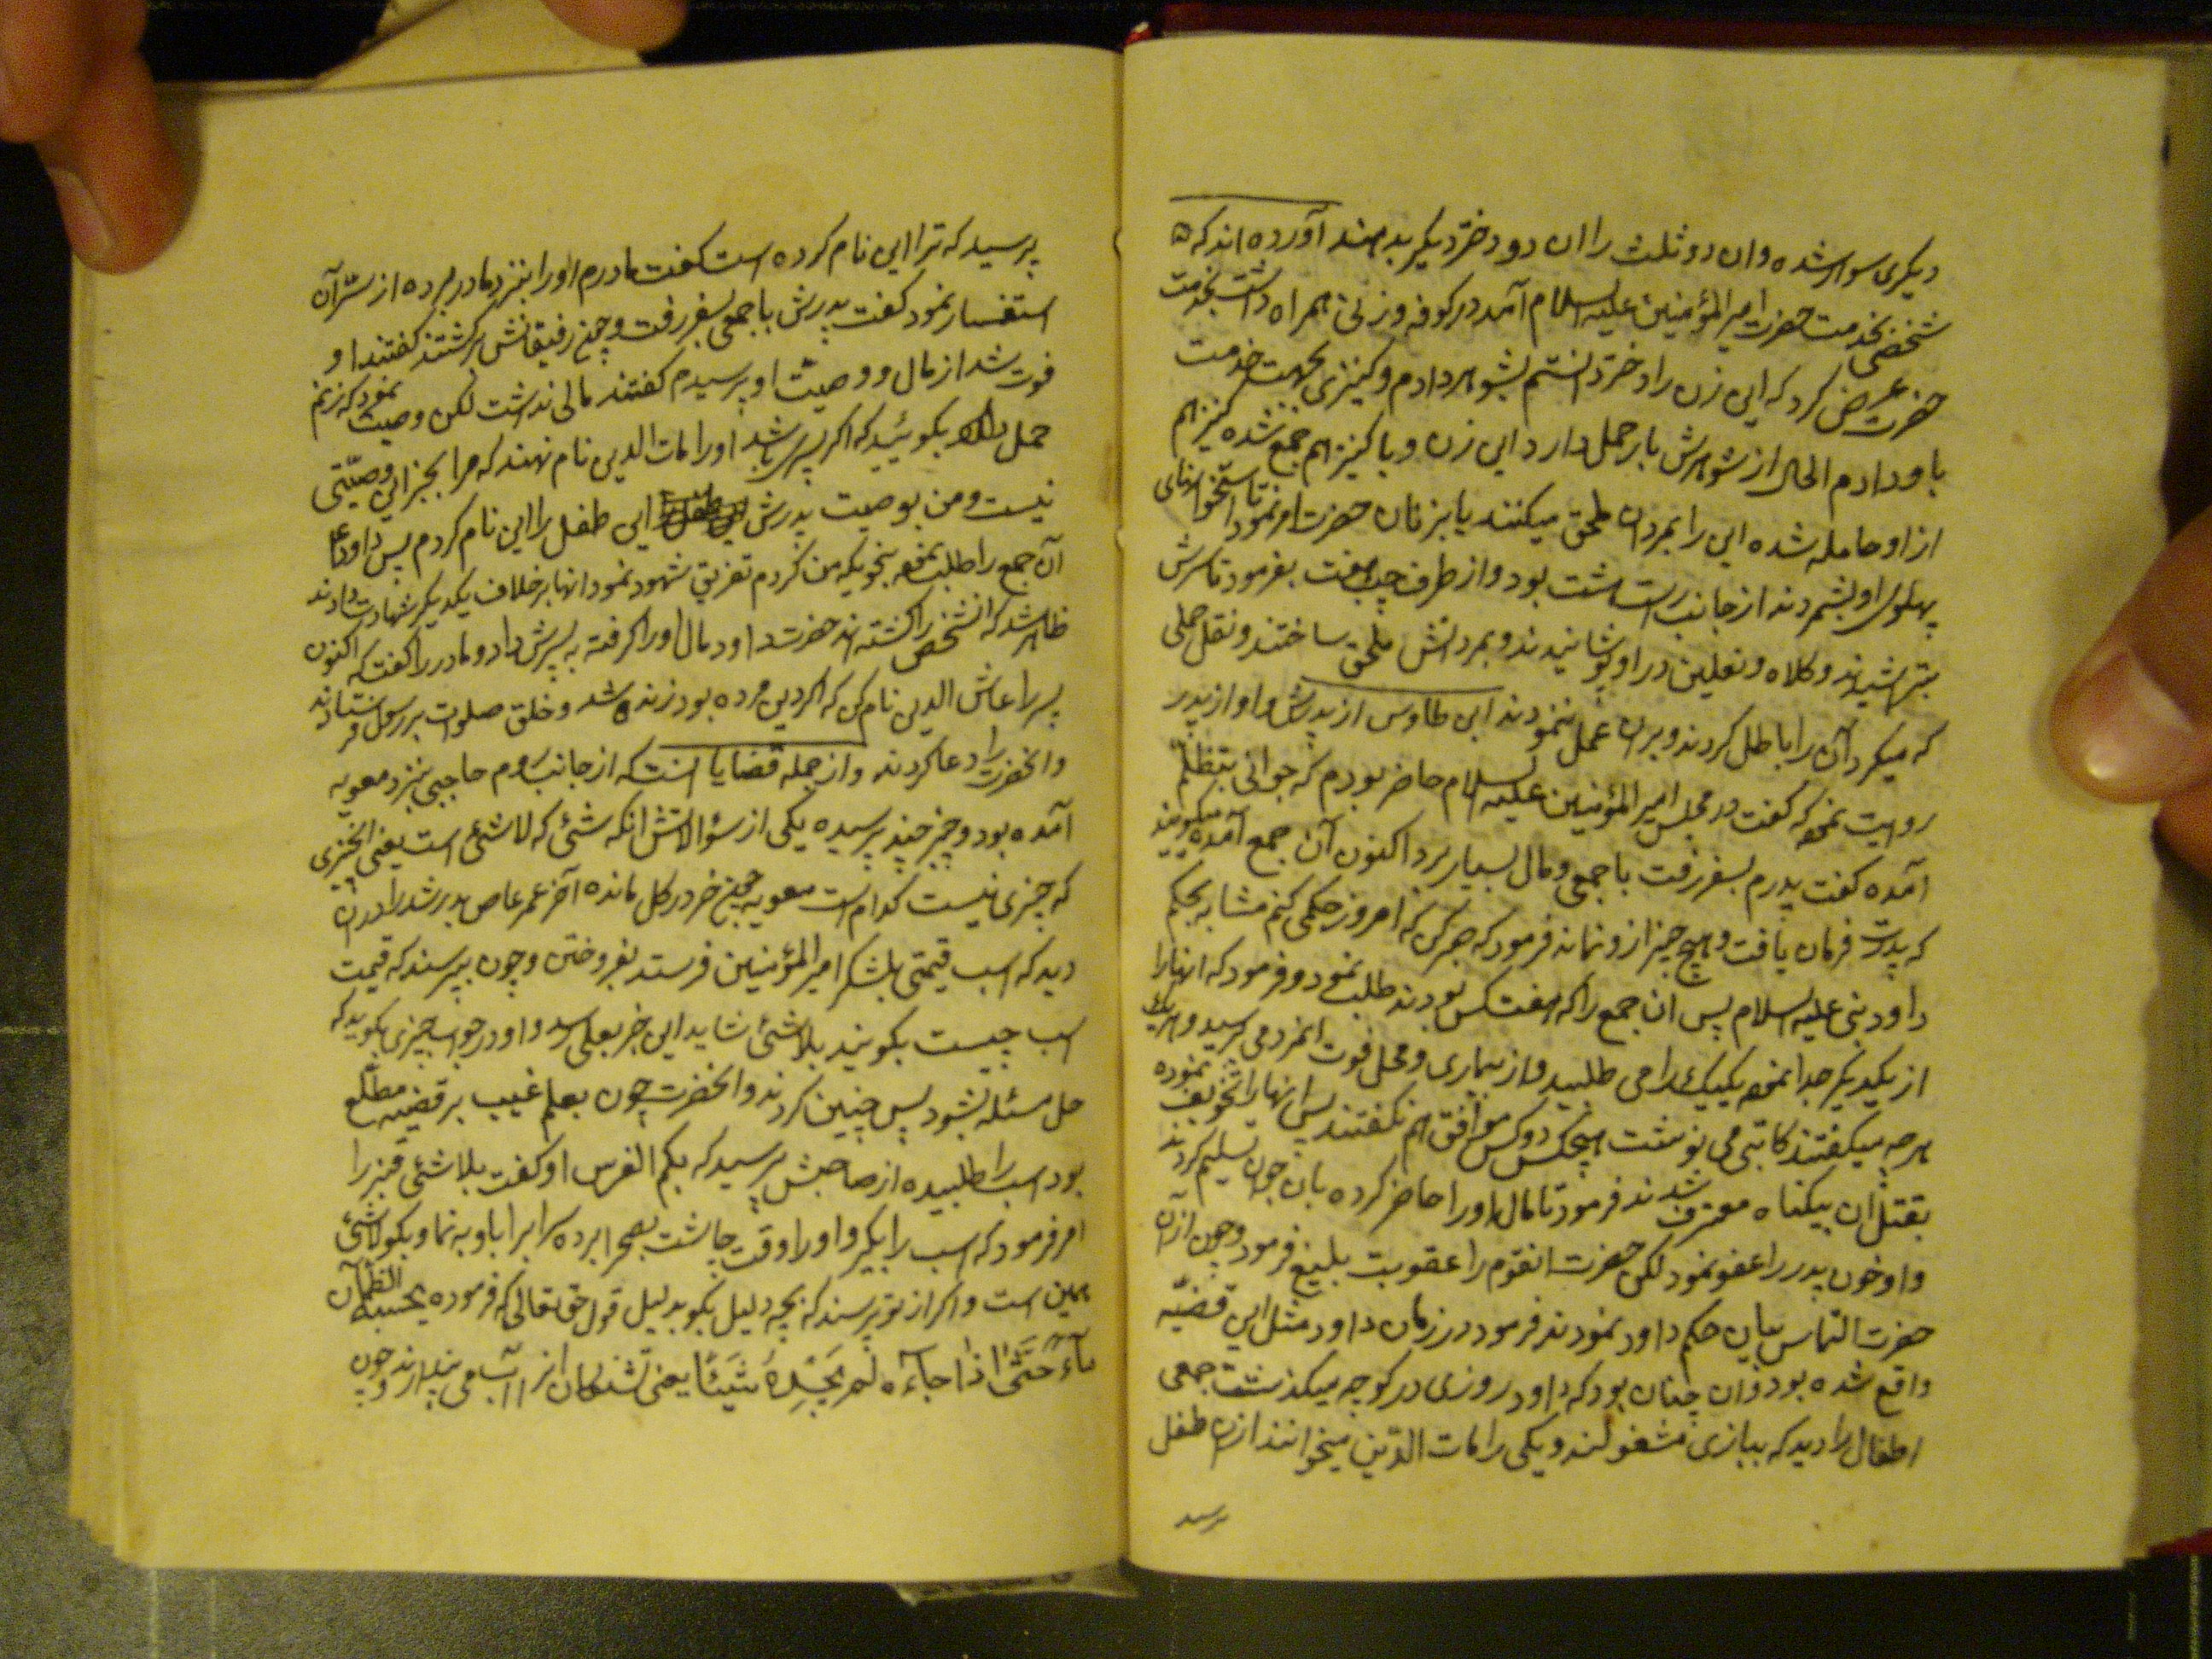 دیکری سوار شده وان دو ثلث را ان دو دختر دیکر بدهند آورده اند که
شخصی بخدمت حضرت امیر المؤمنین علیه السلام آمد در کوفه و زنی همراه داشت بخدمت
حضرت عرض کرد که این زن را دختر دانستم بشوهر دادم و کنیزی بجهت خدمت
باو دادم الحال از شوهرش بار حمل دارد این زن و با کنیز هم جمع شده کنیز هم
از او حامله شده این را بمردان ملحق میکنند یا بزنان حضرت امر نمود تا استخوانهای
پهلوی او بشمردند از جانب راست هشت بود و از طرف چپ هفت بفرمود تا سرش
بتراشیدند و کلاه و نعلین در او پوشانیدند و بمردانش ملحق ساختند و نقل حملی
که میکرد آن را باطل کردند و بران عمل ننمودند ابن طاوس از پدرش و او از پدر
روایت نموده که کفت در مجلس امیر المؤمنین علیه السلام حاضر بودم که جوانی بتظلم
آمده کفت پدرم بسفر رفت با جمعی و مال بسیار برد اکنون آن جمع آمده میکویند
که پدرت فرمان یافت و هیچ چیز ازو نماند فرمود که صبر کن که امروز حکمی کنم مشابه بحکم
داود نبی علیه السلام پس ان جمع را که هفت کس بودند طلب نمود و فرمود که انها را
از یکدیکر جدا نموده یکیک را می طلبید و از بیماری و محل فوت انمرد می پرسید و هر یک
هر چه میکفتند کاتبی می نوشت هیچکس دو کس موافق هم نکفتند پس انها را تخویف نموده
بقتل ان بیکناه معترف شدند فرمود تا مال او را حاضر کرده بان جوان تسلیم کردند
و او خون پدر را عفو نمود لکن حضرت انقوم را عقوبت بلیغ فرمود و چون از آن
حضرت التماس بیان حکم داود نمودند فرمود در زمان داود مثل این قضیّه
واقع شده بود و ان چنان بود که داود روزی در کوچه میکذشت جمعی
اطفال را دید که ببازی مشغولند و یکی را مات الدّین میخوانند از ان طفل
پرسید
پرسید که ترا این نام کرده است کفت مادرم او را بنزد مادر برده از سرّ آن
استفسار نمود کفت پدرش با جمعی بسفر رفت و چون رفیقانش برکشتند کفتند او
فوت شد از مال و وصیت او پرسیدم کفتند مالی نداشت لکن وصیت نمود که زنم
حمل دارد بکوئید که اکر پسر باشد او را مات الدین نام نهند که مرا بجز این وصیّتی
نیست و من بوصیت پدرش این طفل را این نام کردم پس داود
آن جمع را طلب نموده بنحویکه من کردم تفریق شهود نمود انها بر خلاف یکدیکر شهادت دادند
ظاهر شد که انشخص را کشته اند حضرت داود مال او را کرفته به پسرش داد و مادر را کفت که اکنون
پسر را عاش الدین نام کن که اکر دین مرده بود زنده شد و خلق صلوات بر رسول فرستادند
وانحضرت را دعا کردند و از جمله قضایا انست که از جانب روم حاجبی بنزد معویه
آمده بود و چیز چند پرسیده یکی از سؤالاتش انکه شئ که لاشئ است یعنی الخیزی
که چیزی نیست کدام است معویه چون خر در کل مانده آخر عمر عاص پدرشد را در ان
دید که اسب قیمتی بلشکر امیر المؤمنین فرستد بفروختن و چون بپرسند که قیمت
اسب چیست بکویند بلاشئ شاید این خبر بعلی رسد و او در جواب چیزی بکوید که
حل مسئله بشود پس چنین کردند وانحضرت چون بعلم غیب بر قضیه مطلع
بود اسب را طلبیده از صاحبش پرسید که بکم الفرس او کفت بلاشئ قنبر را
امر فرمود که اسب را بکیر و او را وقت چاشت بصحرا برده سراب را باو بنما و بکو لاشئ
همین است و اکر از تو پرسند که بچه دلیل بکو بدلیل قول حق تعالی که فرموده یحسبه الظمآن
ماءً حَتّى اذا جاءَه لَم یَجِدْهُ شَیْئًا یعنی تشنکان انرا آب می پندارند و چون